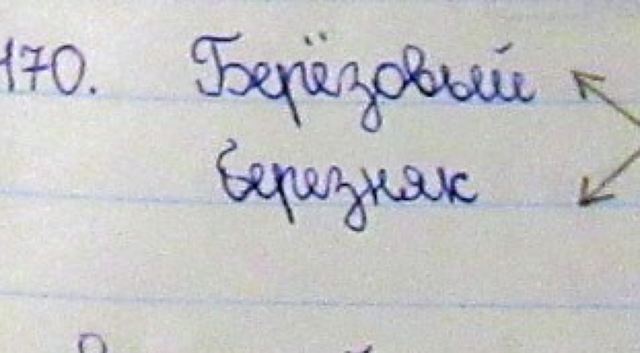 170. Берёзовый
березняк